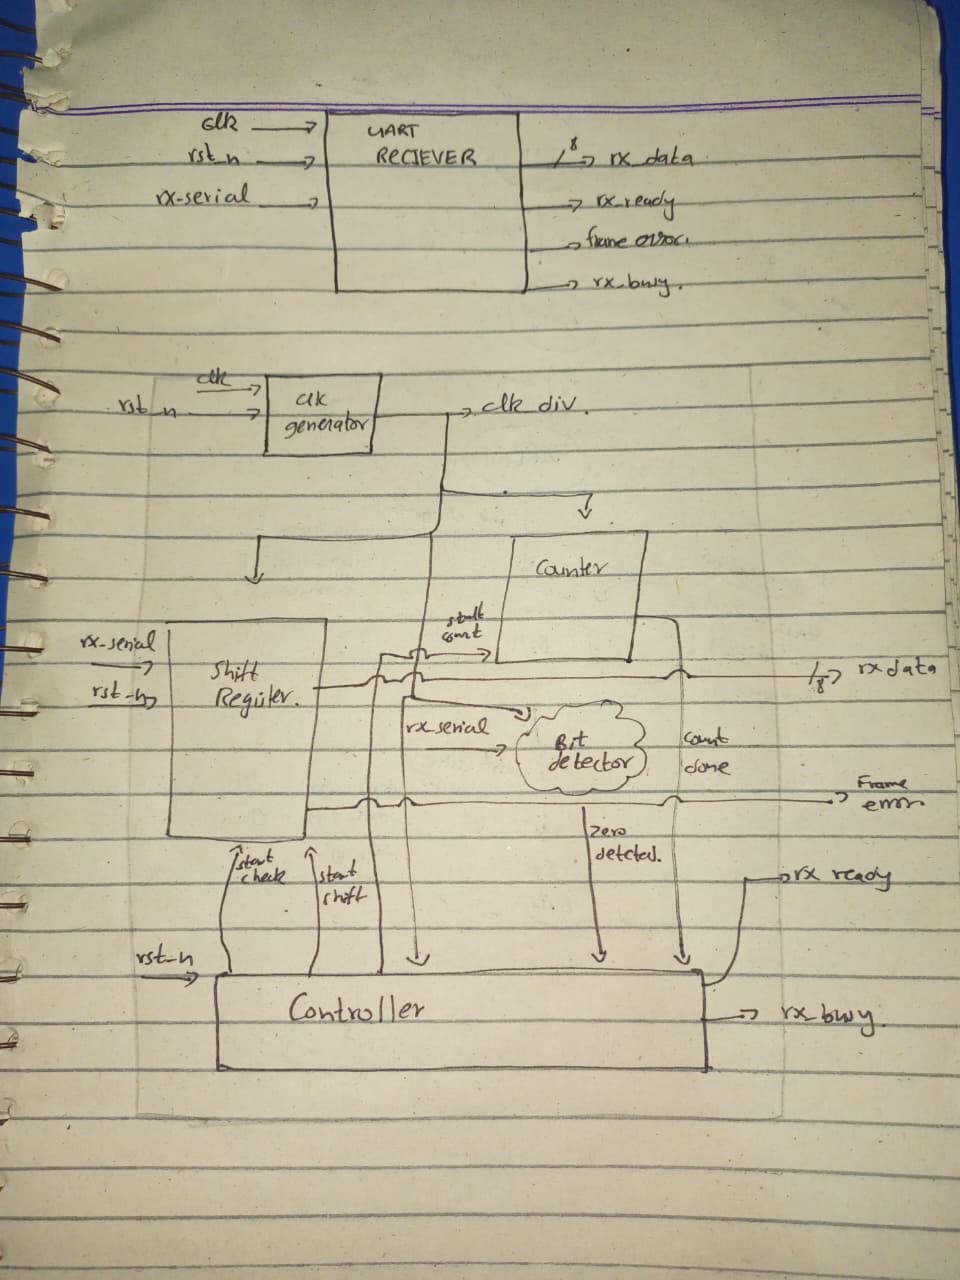 clk
UART
RECIEVER
rst_n
8
rx_data
rx-serial
rx_ready
frame error.
rx_busy.
clk
rst_n
clk
generator
clk_div.
Counter
start
count
rx_serial
rst_n
Shift
Register.
8
rx data
rx_serial
Bit
detector
count
done
Frame
error
zero
detcted.
start
check
start
shift
rx ready
rst_n
Controller
rx_busy.